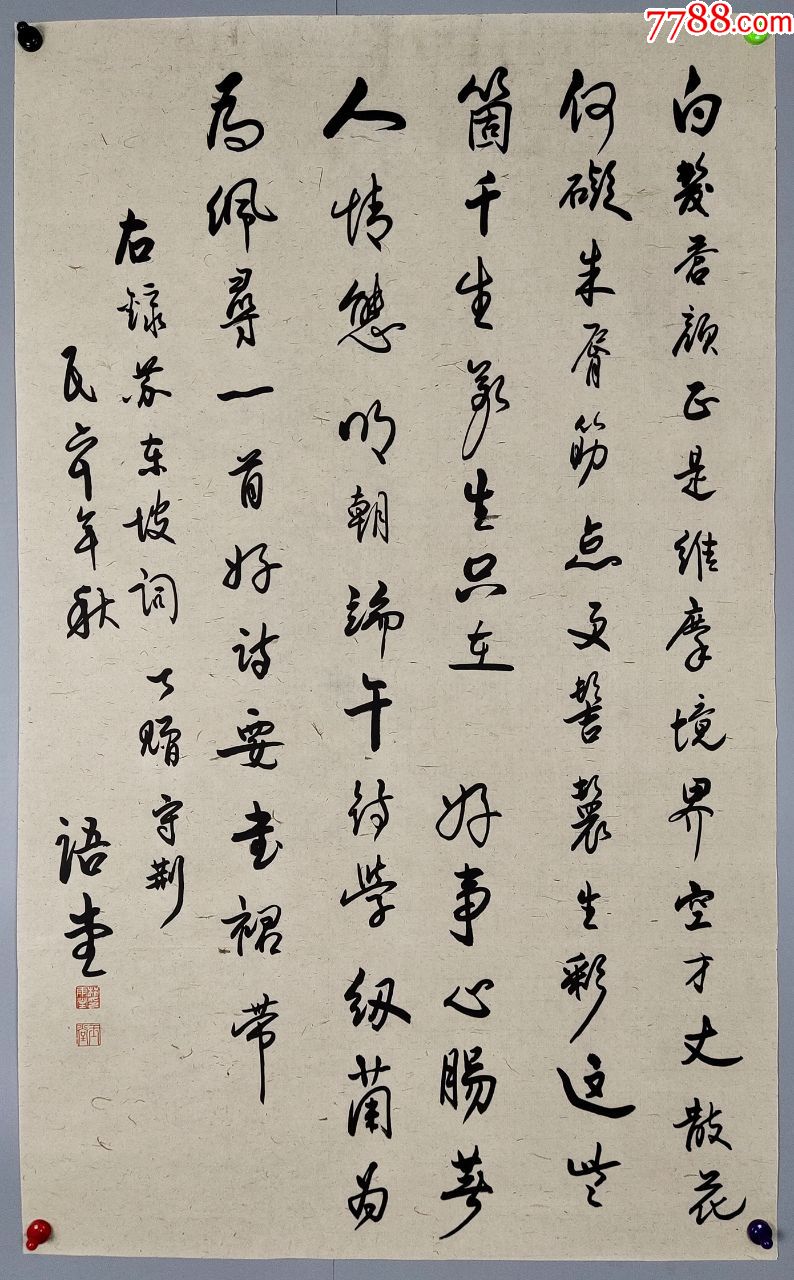 7788.com
白髮蒼顏正是維摩境界空方丈散花
何礙朱脣筯点更髻鬟生彩這些
箇千生萬生只在 好事心腸著
人情態明朝端午待學紉蘭為
為佩尋一首好詩要書裙帶
右錄蘇東坡詞 以贈 守荊
民年秋 語堂